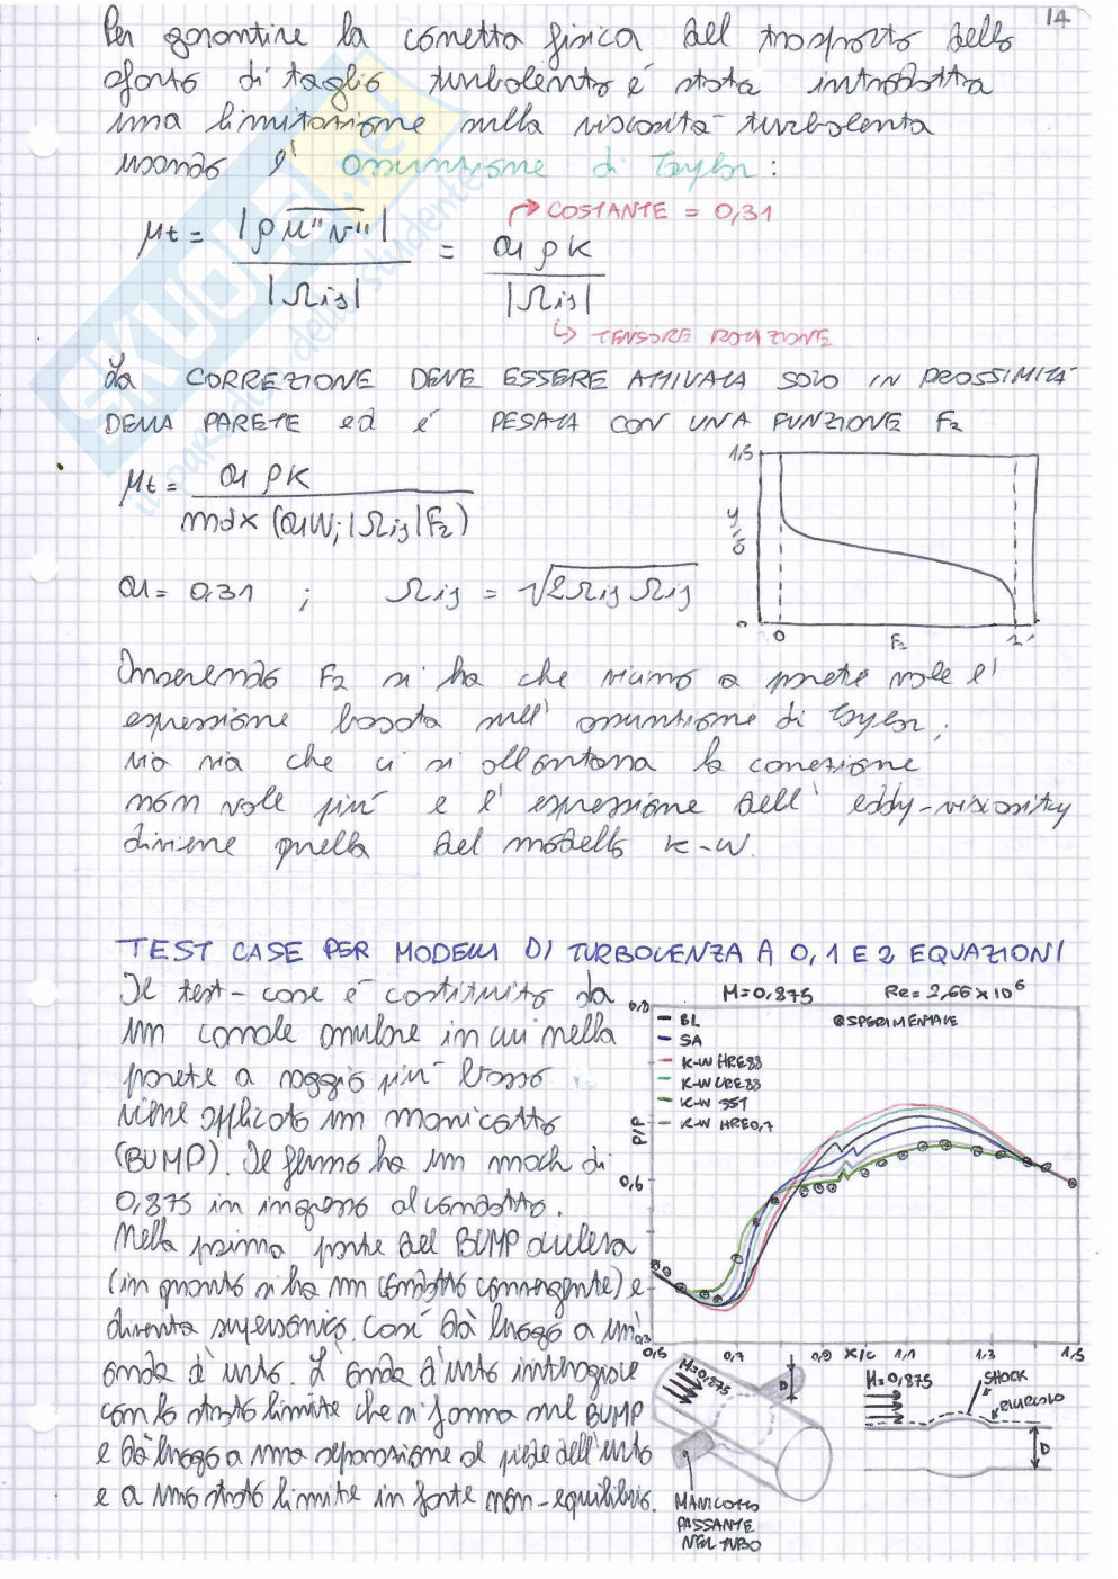 14
Per garantire la corretta fisica del trasporto dello
sforzo di taglio turbolento è stata introdotta
una limitazione sulla viscosità turbolenta
usando l' assunzione di Taylor :
→ COSTANTE = 0,31
μt = |ρ u''v''| / |Ωij| = a1 ρ K / |Ωij|
↳ TENSORE ROTAZIONE
La CORREZIONE DEVE ESSERE ATTIVATA SOLO IN PROSSIMITÀ
DELLA PARETE ed è PESATA CON UNA FUNZIONE F2
μt = a1 ρ K / max (a1 W; |Ωij| F2)
a1 = 0,31 ; Ωij = √2Ωij Ωij
1,5
y/δ
0
0 F2 1
Inserendo F2 si ha che vicino a parete vale l'
espressione basata sull' assunzione di Taylor;
via via che ci si allontana la correzione
non vale più e l' espressione dell' eddy-viscosity
diviene quella del modello K-W.
TEST CASE PER MODELLI DI TURBOLENZA A 0, 1 E 2 EQUAZIONI
Il test-case è costituito da
un canale anulare in cui nella
parete a raggio più basso
viene applicato un manicotto
(BUMP). Il flusso ha un mach di
0,875 in ingresso al condotto.
Nella prima parte del BUMP accelera
(in quanto si ha un condotto convergente) e
diventa supersonico. Così dà luogo a un'
onda d'urto. L'onda d'urto interagisce
con lo strato limite che si forma sul BUMP
e dà luogo a una separazione al piede dell'urto
e a uno strato limite in forte non-equilibrio.
M=0,875 Re= 2,66 x 10⁶
BL
SA
K-W HRE88
K-W LRE88
K-W SST
K-W HRE0,7
SPERIMENTALE
P/P
0,6
0,6 0,7 0,9 x/c 1,1 1,3 1,5
M=0,875
D
MANICOTTO
PASSANTE
NEL TUBO
M=0,875
SHOCK
RICIRCOLO
D
SKUOLA.net